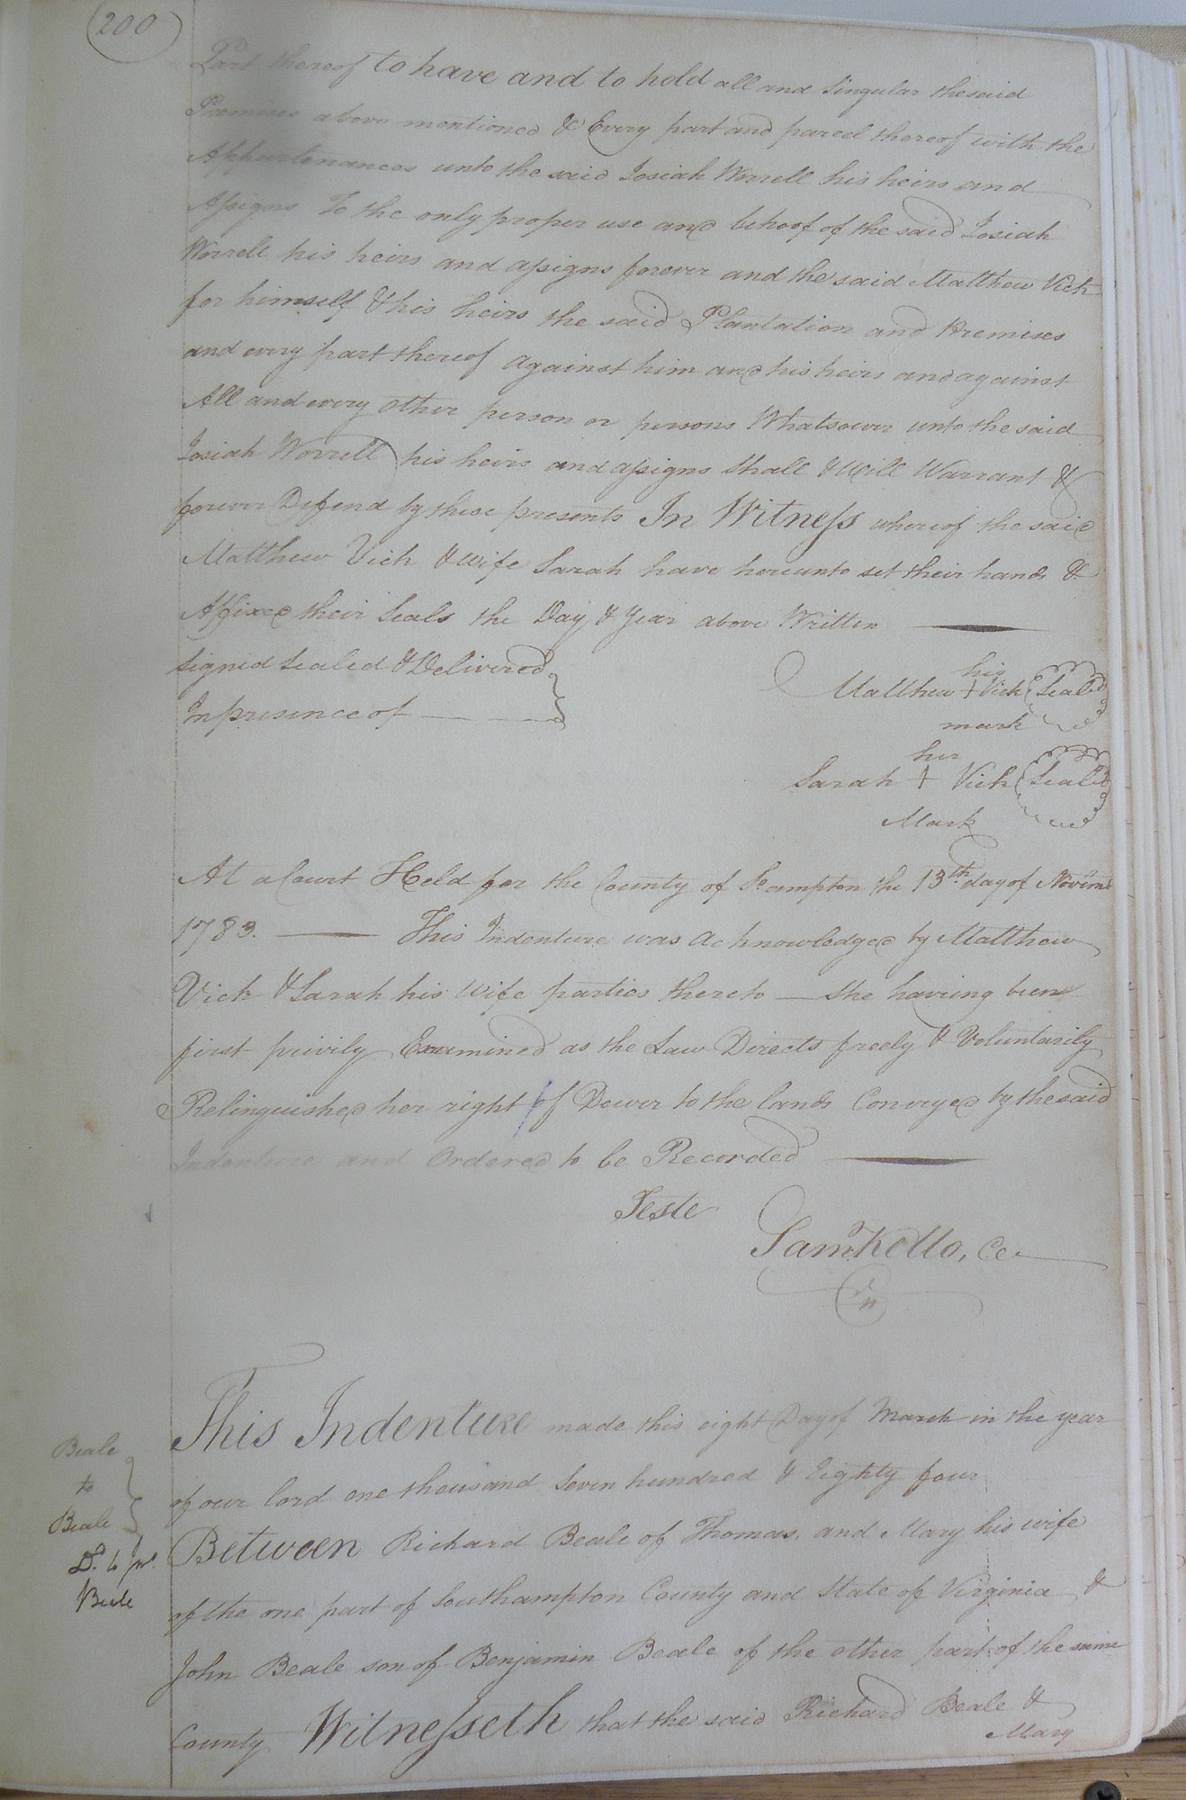 (200)
Part thereof to have and to hold all and Singular the said
Premises above mentioned & Every part and parcel thereof with the
Appurtenances unto the said Josiah Worrell his heirs and
Assigns To the only proper use and behoof of the said Josiah
Worrell his heirs and assigns forever and the said Matthew Vick
for himself & his heirs the said Plantation and Premises
and every part thereof against him and his heirs and against
All and every other person or persons Whatsoever unto the said
Josiah Worrell his heirs and assigns Shall & Will Warrant &
forever Defend by these presents In Witness whereof the said
Matthew Vick & wife Sarah have hereunto set their hands &
Affixed their Seals the Day & Year above Written
Signed Sealed & Delivered
In presence of
his
Matthew + Vick Seal
mark
her
Sarah + Vick Seal
Mark
At a Court Held for the County of So.ampton the 13th day of Novem
1783. This Indenture was acknowledged by Matthew
Vick & Sarah his Wife parties thereto she having been
first privily Examined as the Law Directs freely & Voluntarily
Relinquished her right of Dower to the lands Conveyed by the said
Indenture and Ordered to be Recorded
Teste
Sam Kello, CC
This Indenture made this eight Day of March in the year
of our lord one thousand Seven hundred & Eighty four
Between Richard Beale of Thomas, and Mary his wife
of the one part of Southampton County and State of Virginia &
John Beale son of Benjamin Beale of the other part of the same
County Witnesseth that the said Richard Beale &
Mary
Beale
to
Beale
Beale